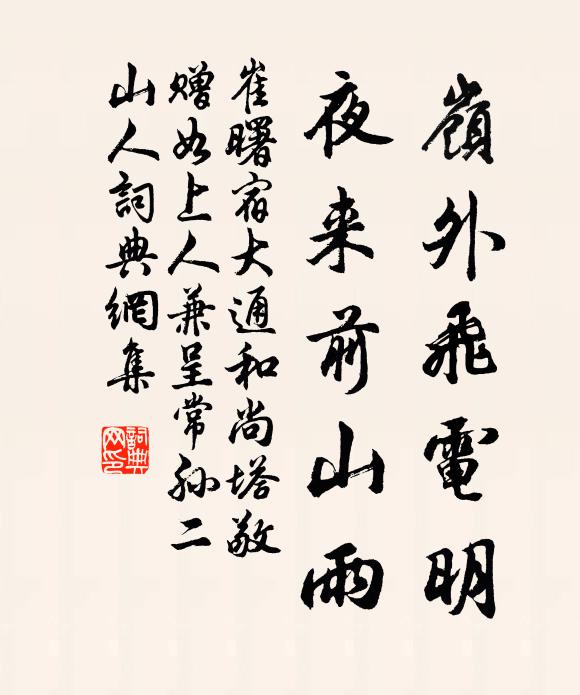 嶺外飛電明
夜来前山雨
崔曙宿大通和尚塔敬
赠如上人兼呈常孙二
山人詞典網集
詞典
网印